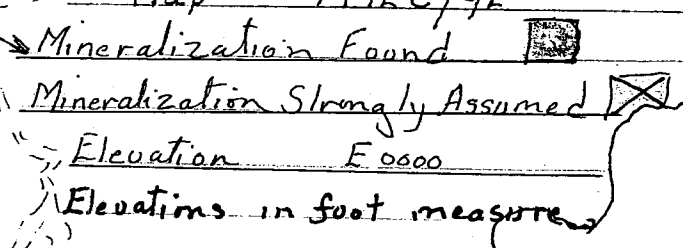 Map
Mineralization Found
Mineralization Strongly Assumed
Elevation E 0000
Elevations in foot measure